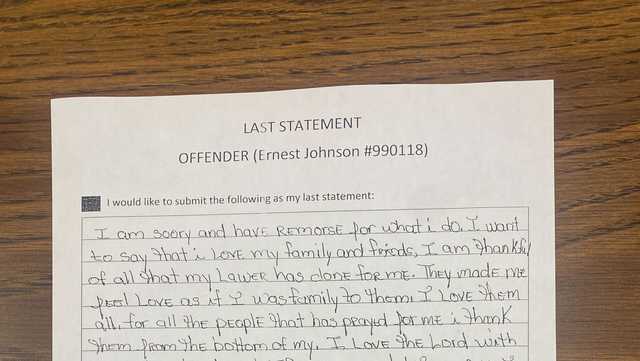 LAST STATEMENT
OFFENDER (Ernest Johnson #990118)
I would like to submit the following as my last statement:
I am soory and have REMORSE for what i do, I want
to say that i LOVE my family and friends, I am thankful
of all that my Lawer has done for me. They made me
feel Love as if I was family to them. I LOVE them
all. for all the people that has prayed for me i thank
them from the bottom of my. I LOVE the Lord with